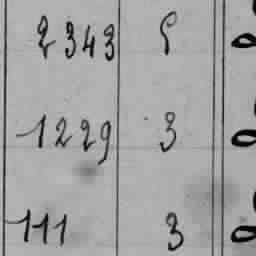 2343
1229 3
111 3